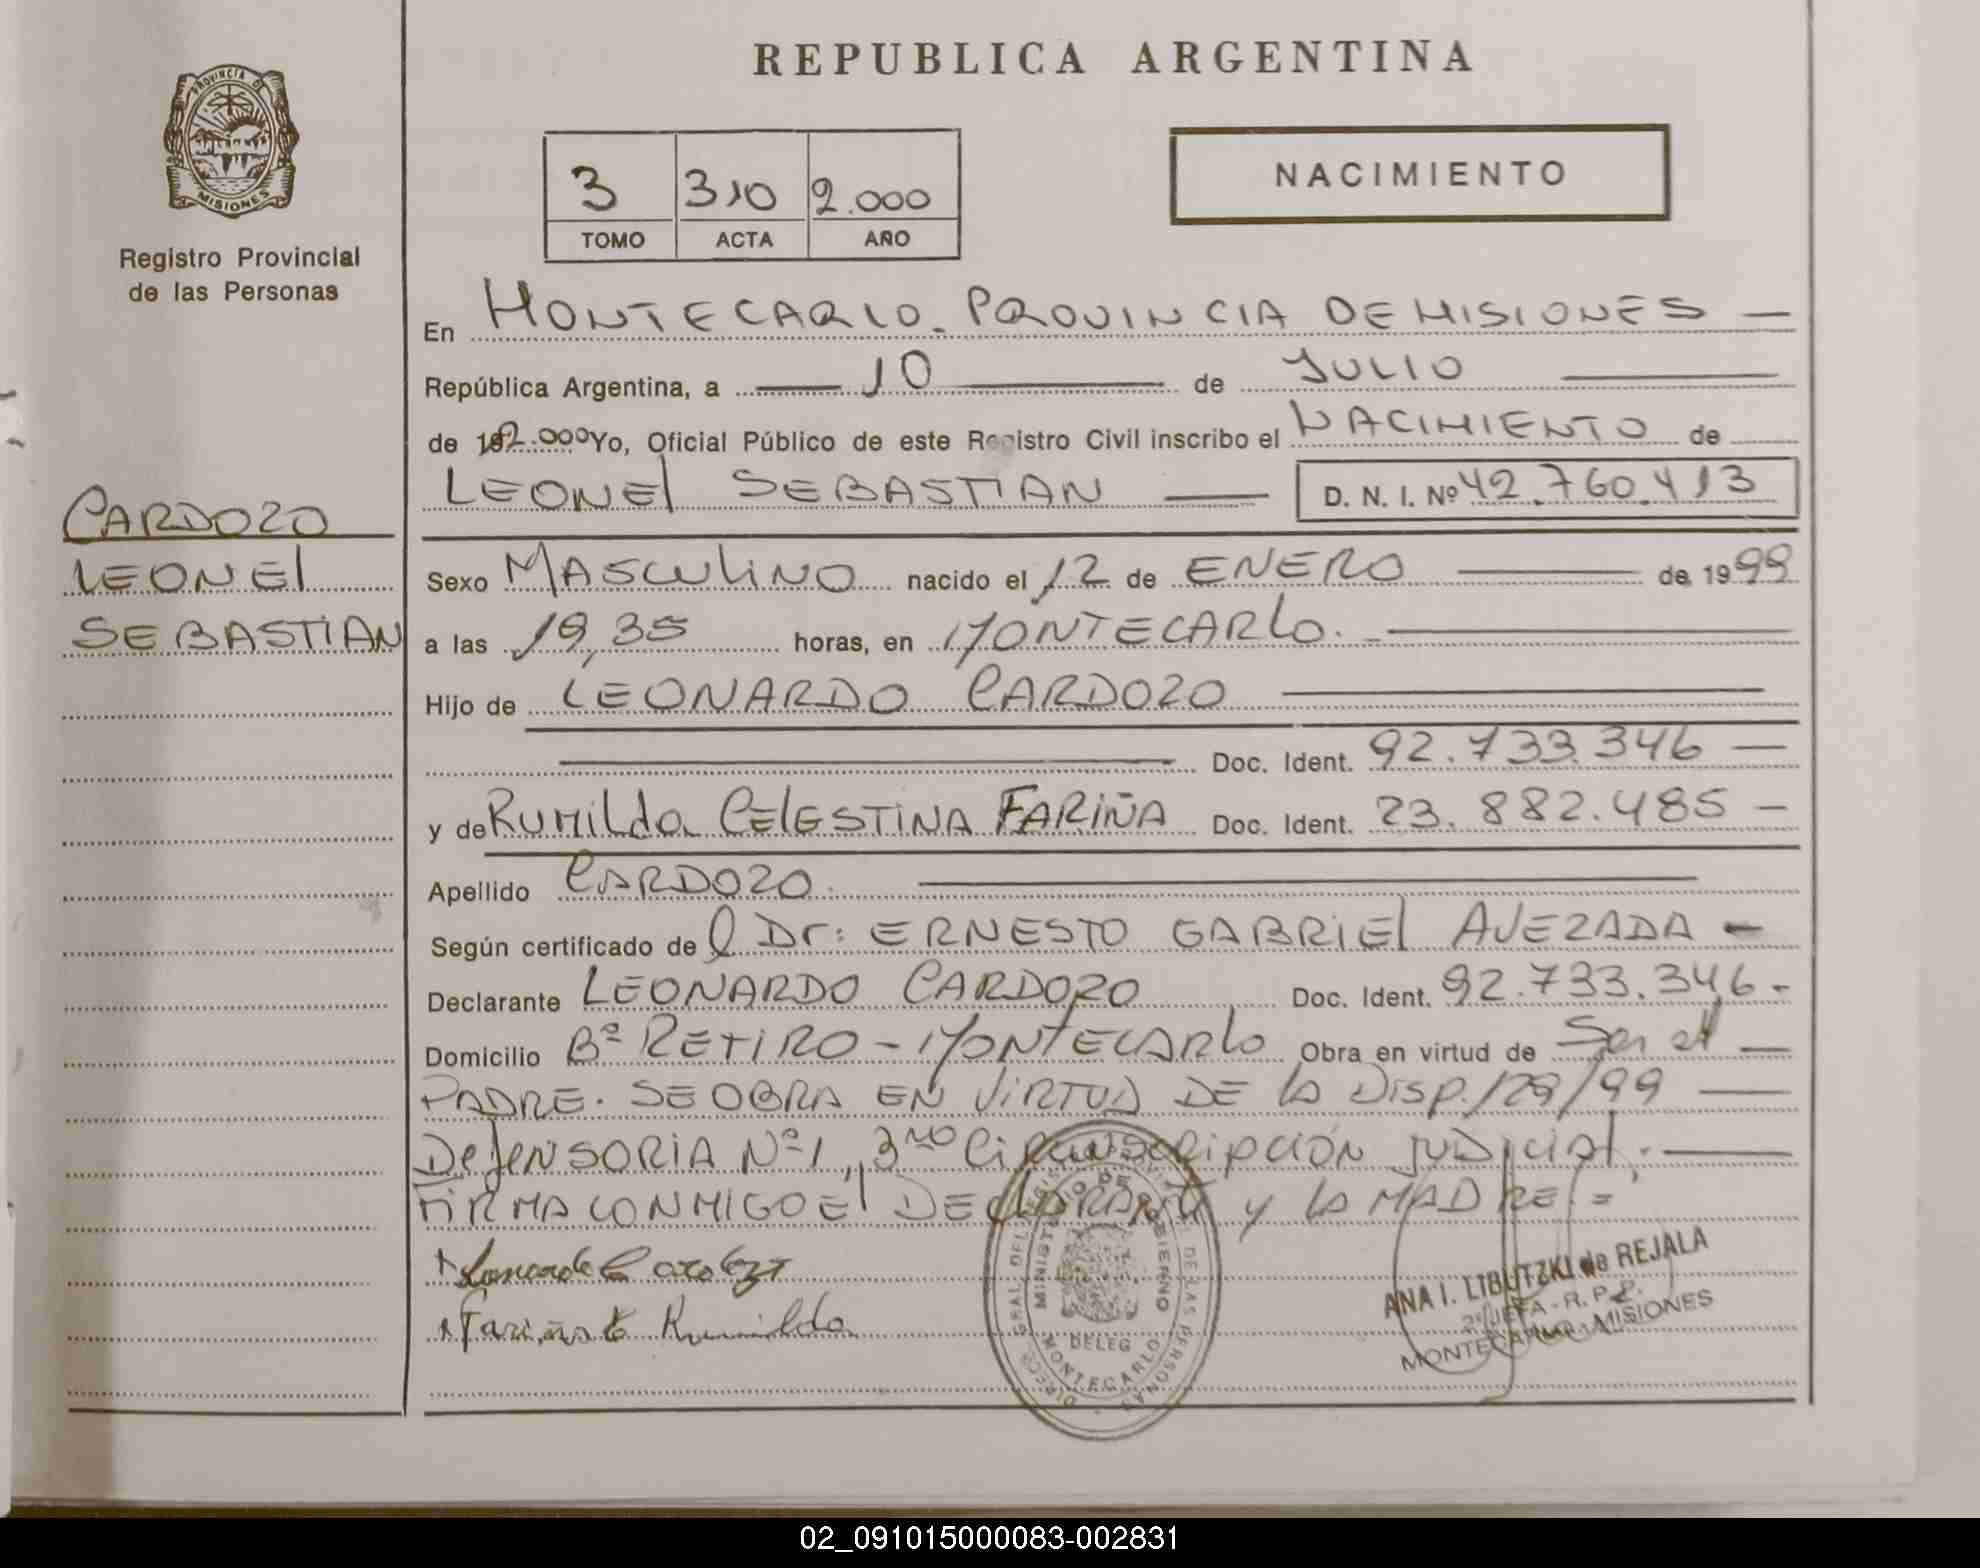 REPUBLICA ARGENTINA
PROVINCIA DE
MISIONES
Registro Provincial
de las Personas
3 310 2.000
TOMO ACTA AÑO
NACIMIENTO
En MONTECARLO. PROVINCIA DE MISIONES —
República Argentina, a — 10 — de JULIO —
de 2.000 Yo, Oficial Público de este Registro Civil inscribo el NACIMIENTO de
LEONEL SEBASTIAN — D. N. I. Nº 42.760.413
CARDOZO
LEONEL
SEBASTIAN
Sexo MASCULINO nacido el 12 de ENERO — de 1999
a las 19,35 horas, en MONTECARLO. —
Hijo de LEONARDO CARDOZO —
— Doc. Ident. 92.733.346 —
y de RUMILDA CELESTINA FARIÑA Doc. Ident. 23.882.485 —
Apellido CARDOZO. —
Según certificado de l Dr: ERNESTO GABRIEL AVEZADA —
Declarante LEONARDO CARDOZO Doc. Ident. 92.733.346.-
Domicilio Bº RETIRO - MONTECARLO Obra en virtud de Ser el —
PADRE. SE OBRA EN VIRTUD DE LA DISP. 129/99 —
DEFENSORIA Nº 1, 3ra CIRCUNSCRIPCIÓN JUDICIAL. —
FIRMA CONMIGO EL DECLARANTE Y LA MADRE. =
Leonardo Cardozo
Fariña Rumilda
MINISTERIO DE GOBIERNO
DELEG
MONTECARLO
ANA I. LIBUTZKI de REJALA
2º JEFA - R. P. P.
MONTECARLO - MISIONES
02_091015000083-002831